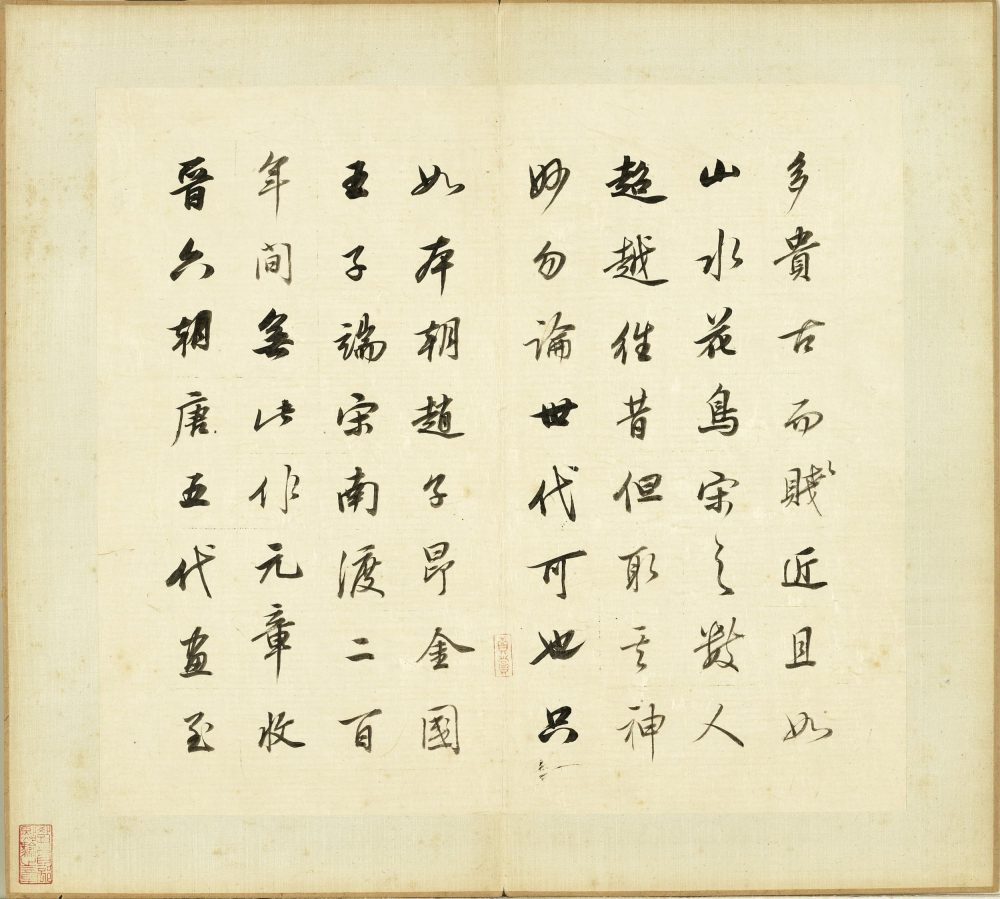 多貴古而賤近且如
山水花鳥宋之數人
超越往昔但取其神
妙勿論世代可也只
如本朝趙子昂金國
王子端宋南渡二百
年間無此作元章收
晉六朝唐五代畫至